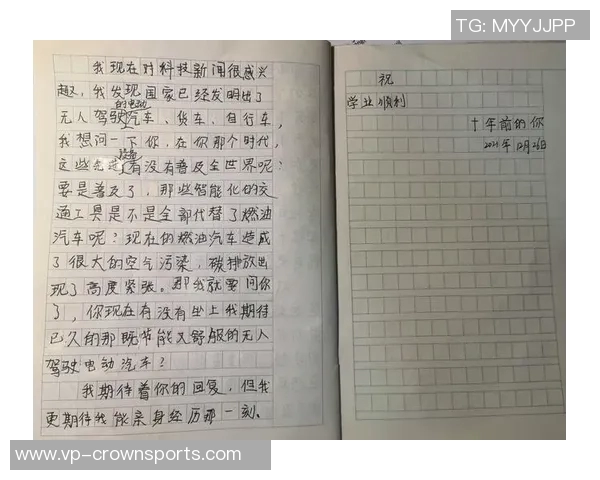 TG: MYYJJPP
我现在对科技新闻很感兴
趣，我发现国家已经发明出了
的电动
无人驾驶汽车、货车、自行车，
我想问一下你，在你那个时代，
设备
这些先进有没有普及全世界呢？
要是普及了，那些智能化的交
通工具是不是全部代替了燃油
汽车呢？现在的燃油汽车造成
了很大的空气污染，碳排放出
现了高度紧张。那我就要问你
了，你现在有没有坐上我期待
已久的那既节能又舒服的无人
驾驶电动汽车？
我期待着你的回复，但我
更期待我能亲身经历那一刻。
祝
学业顺利
十年前的你
2021年12月26日
www.vp-crownsports.com/